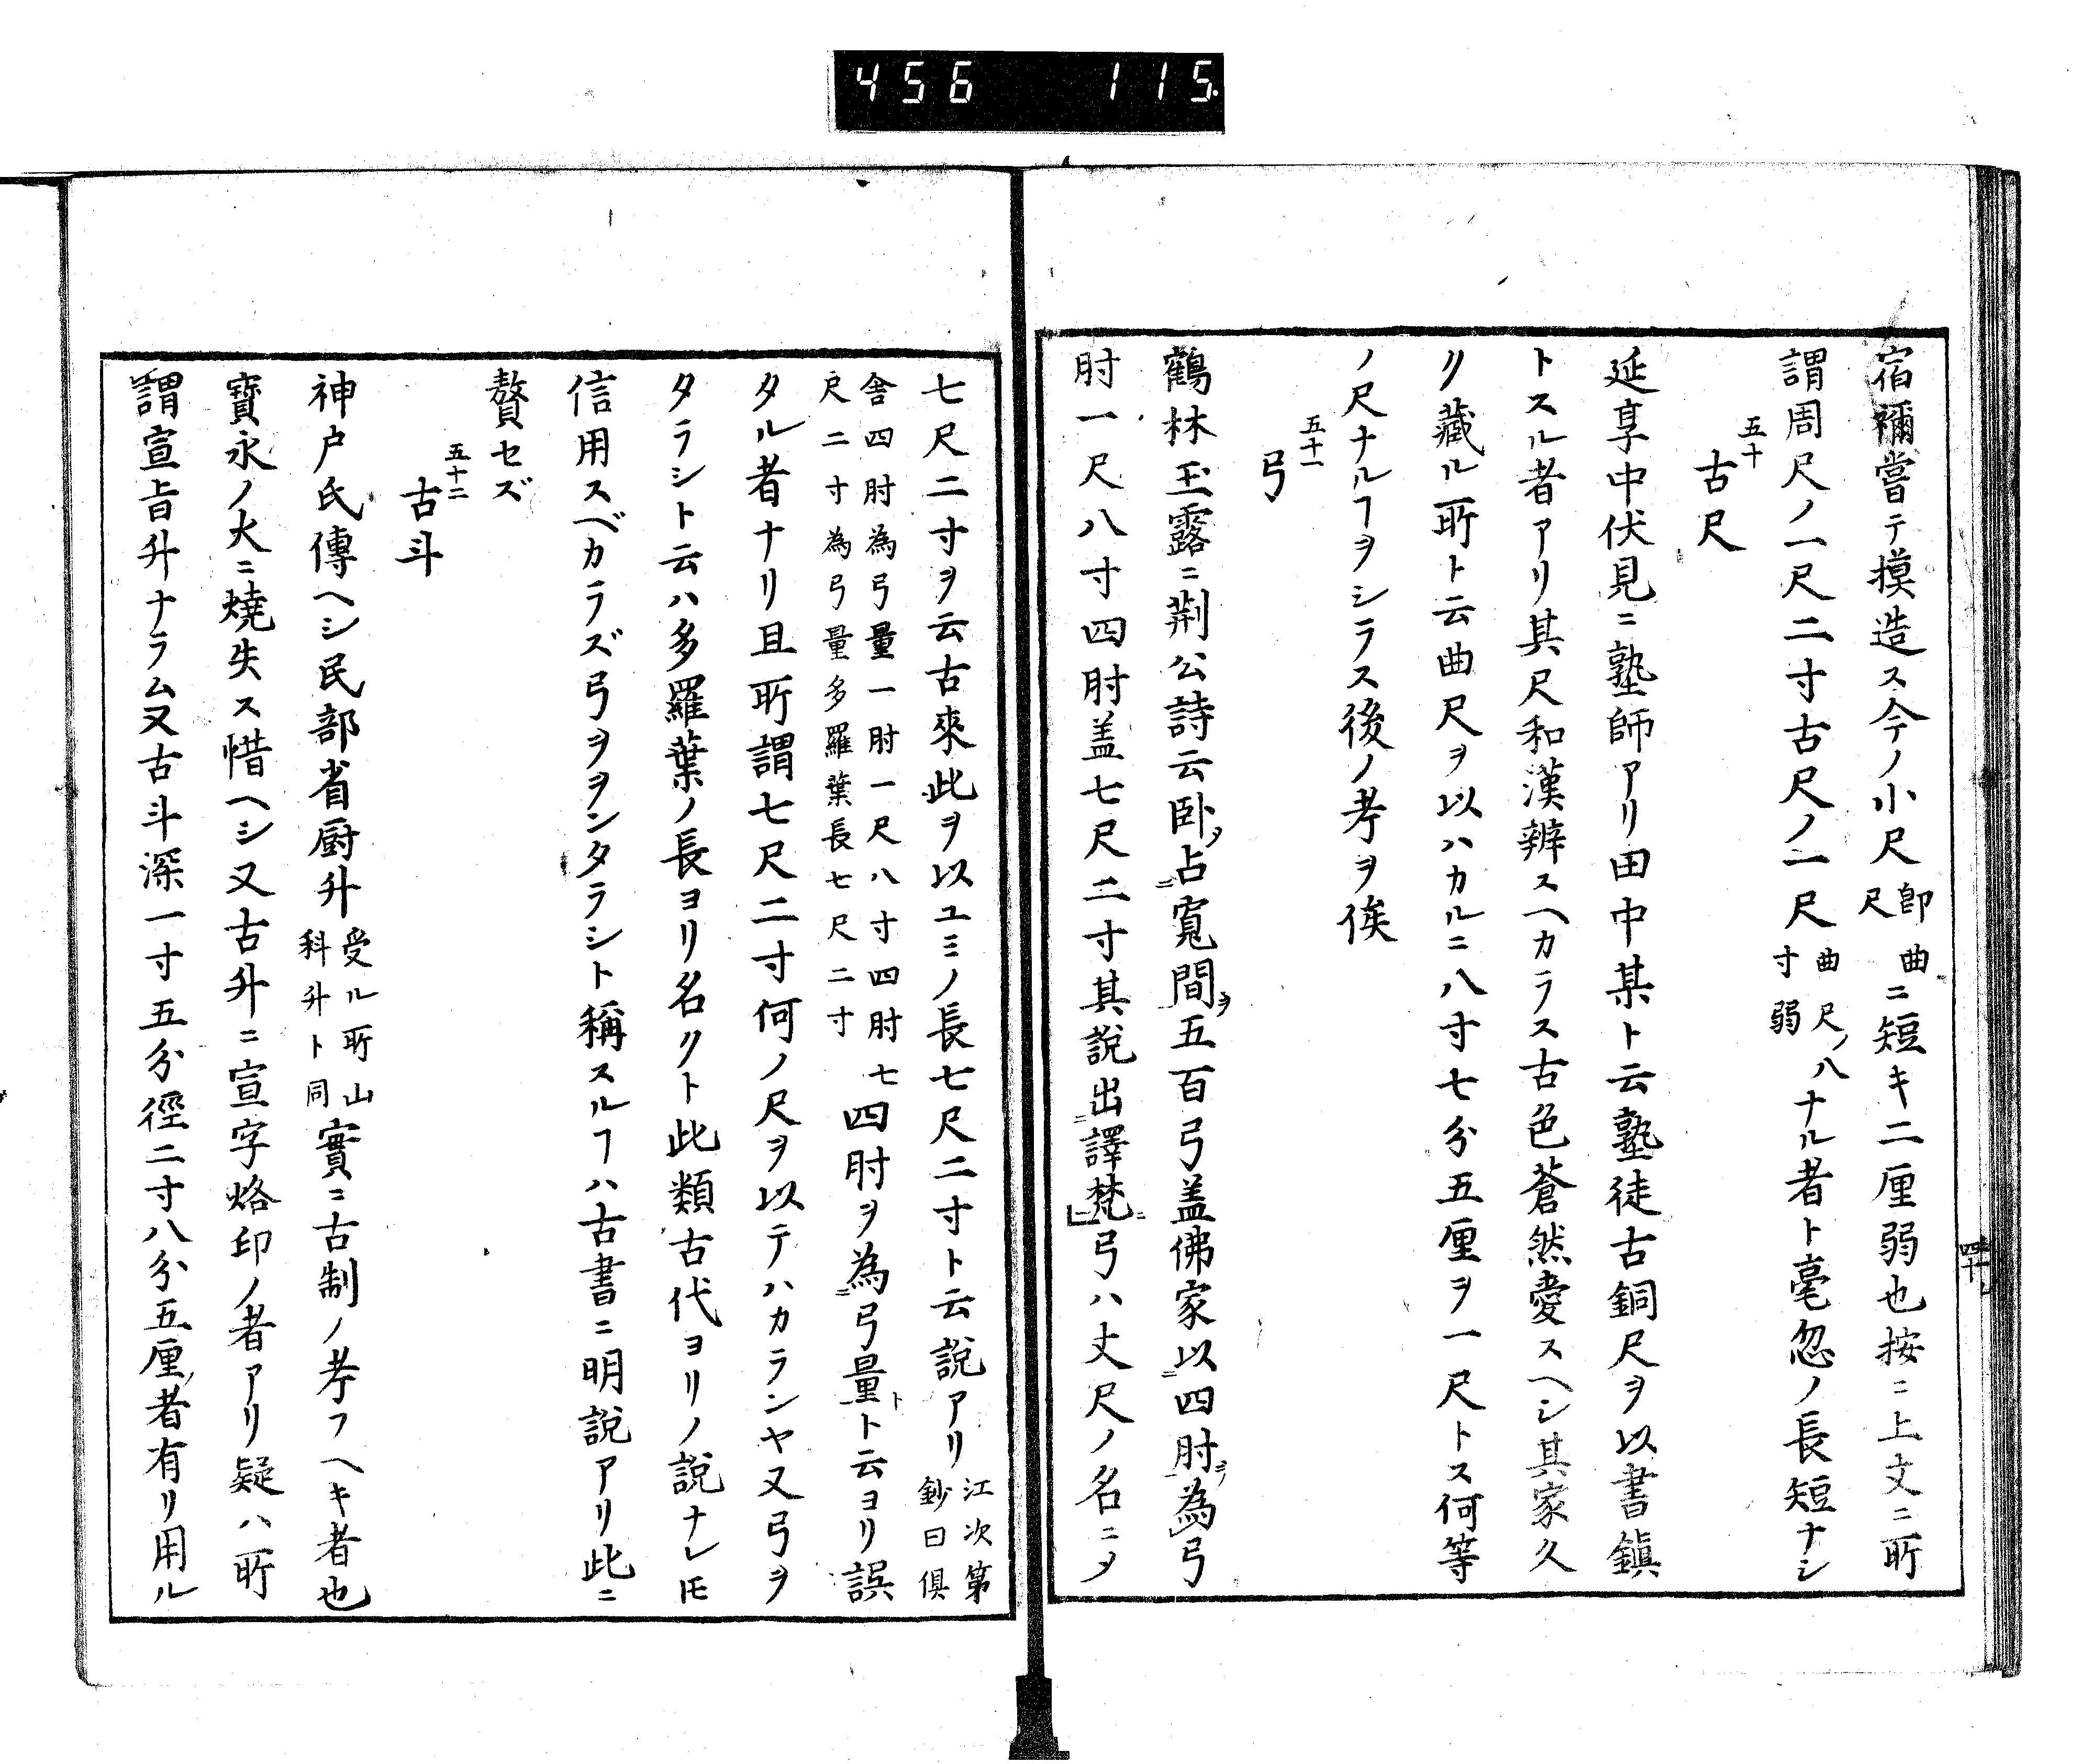 456 115
宿禰嘗テ摸造ス今ノ小尺即曲尺ニ短キ二厘弱也按ニ上文ニ所
謂周尺ノ一尺二寸古尺ノ一尺曲尺ノ八寸弱ナル者ト毫忽ノ長短ナシ
五十
古尺
延享中伏見ニ塾師アリ田中某ト云塾徒古銅尺ヲ以書鎮
トスル者アリ其尺和漢辨スヘカラス古色蒼然愛スヘシ其家久
リ藏ル所ト云曲尺ヲ以ハカルニ八寸七分五厘ヲ一尺トス何等
ノ尺ナルヿヲシラス後ノ考ヲ俟
五十一
弓
鶴林玉露ニ荆公詩云卧占寬間五百弓盖佛家以四肘為弓
肘一尺八寸四肘盖七尺二寸其說出譯梵弓ハ丈尺ノ名ニメ
四十九
七尺二寸ヲ云古來此ヲ以ユミノ長七尺二寸ト云說アリ江次第鈔曰倶
舎四肘為弓量一肘一尺八寸四肘七尺二寸為弓量多羅葉長七尺二寸四肘ヲ為弓量ト云ヨリ誤
タル者ナリ且所謂七尺二寸何ノ尺ヲ以テハカランヤ又弓ヲ
タラシト云ハ多羅葉ノ長ヨリ名クト此類古代ヨリノ說ナレ𪜈
信用スベカラズ弓ヲヲンタラシト稱スルヿハ古書ニ明說アリ此ニ
贅セズ
五十二
古斗
神户氏傳ヘシ民部省厨升受ル所山科升ト同實ニ古制ノ考フヘキ者也
寳永ノ火ニ燒失ス惜ヘシ又古升ニ宣字烙印ノ者アリ疑ハ所
謂宣旨升ナラム又古斗深一寸五分徑二寸八分五厘ノ者有リ用ル